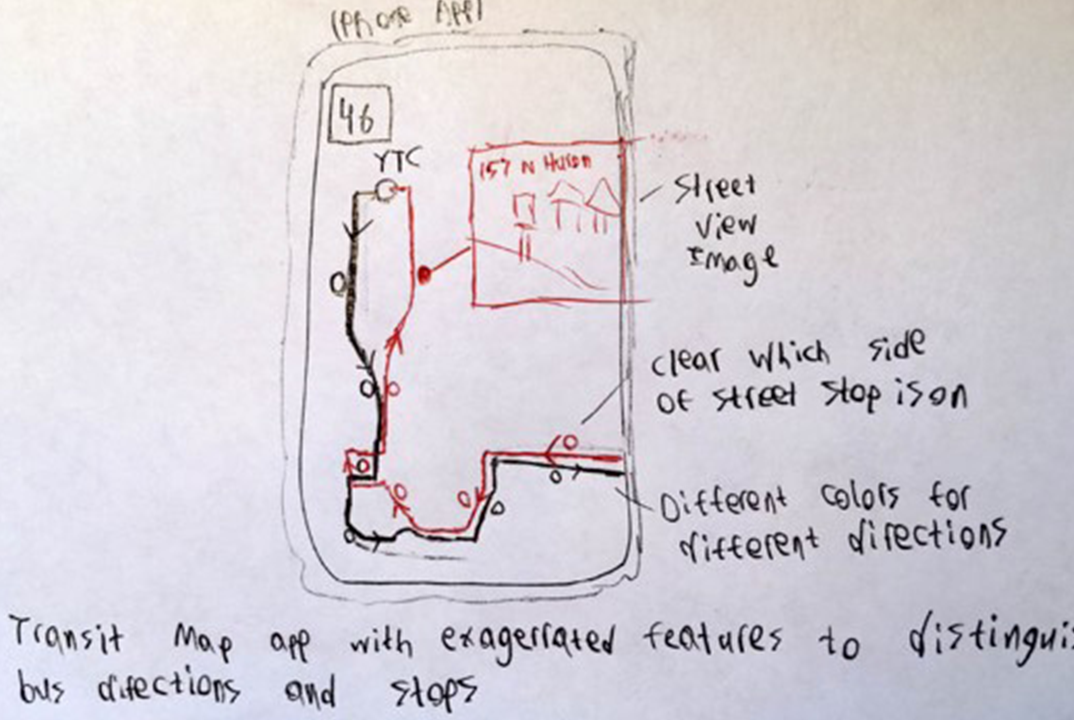 iPhone App
46
YTC
157 N Huron
Street
View
Image
clear which side
of street stop is on
Different colors for
different directions
Transit Map app with exagerrated features to distinguis
bus directions and stops